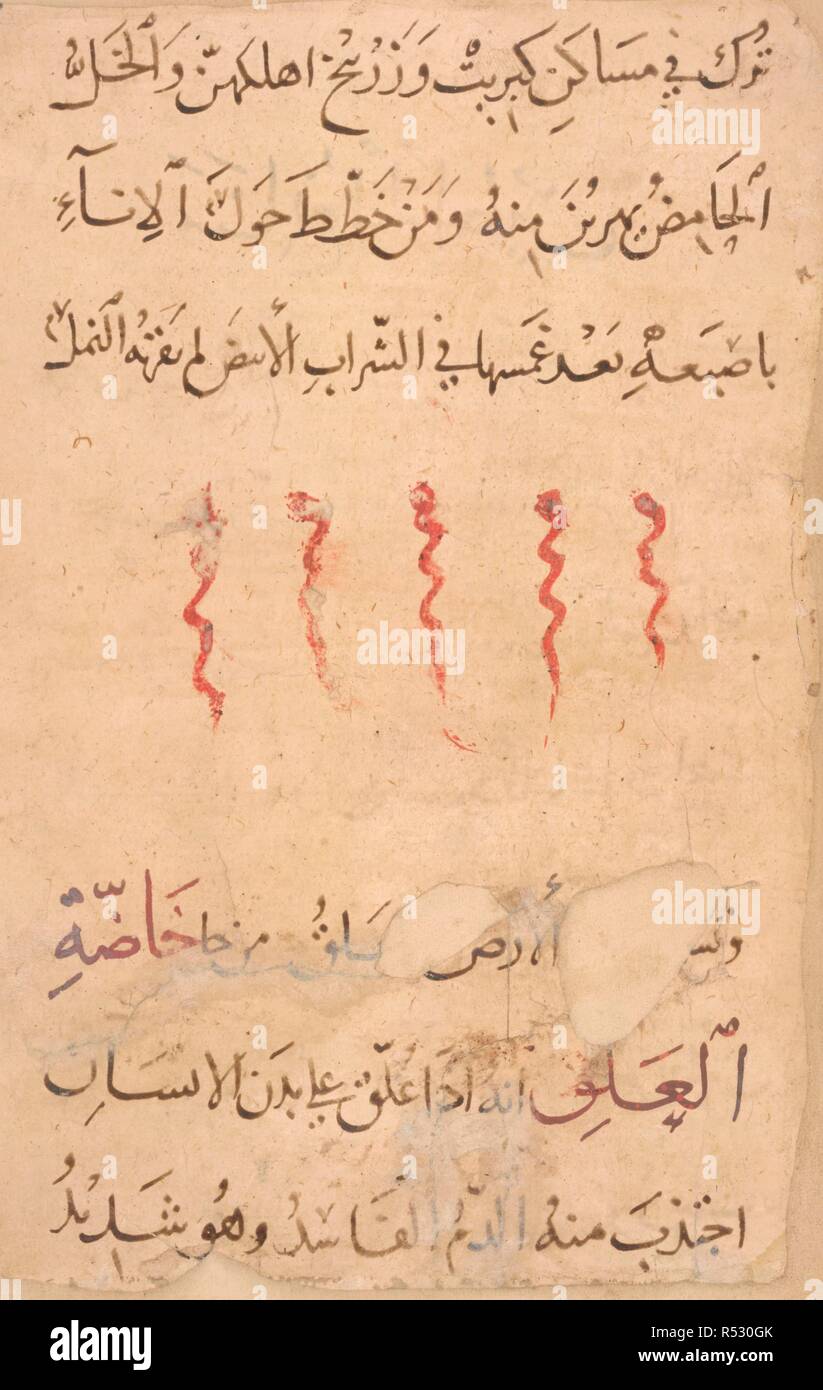 تُرك في مَسَاكَنِ كبريتْ وَزَرْنيخْ اهلكهنّ وَٱلخَلُّ
ٱلحَامِضُ يهربْنَ مِنهُ وَمَنْ خَطّطَ حَوَلَ ٱلاِنآءِ
باصْبَعهِ بَعْد غمَسهَا في الشّرابِ ٱلأبيَض لم يَقربْهُ النملُ
ٱلأرض من خَاصّةِ
ٱلعَلِقِ انه اذَا عَلّقَ علي بدَن الانسَانِ
اجتذبَ منهُ الدّمُ الفَاسِدُ وهُو شَدِيْدُ
alamy
Image ID: R530GK
www.alamy.com